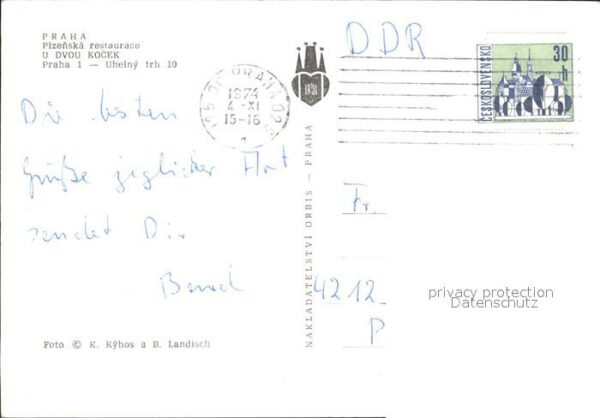 PRAHA
Plzeňská restaurace
U DVOU KOČEK
Praha 1 — Uhelný trh 10
DDR
ČESKOSLOVENSKO
30
h
PRAHA 025
1974
4.-XI
15-16
Die besten
Grüße jeglicher Art
sendet Dir
Bernd
NAKLADATELSTVÍ ORBIS - PRAHA
Fr.
4212
P
privacy protection
Datenschutz
Foto © K. Kýhos a B. Landisch